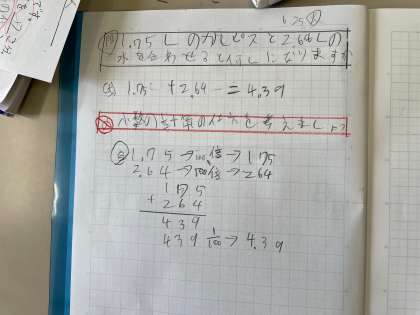 6/25
問 1.75LのカルピスとS2.64Lの
水を合わせると何Lになりますか
式 1.75 + 2.64 = 4.39
め 小数のたし算の仕方を考えましょう
自 1.75→100倍→175
2.64→100倍→264
175
+ 264
439
439 1/100→4.39